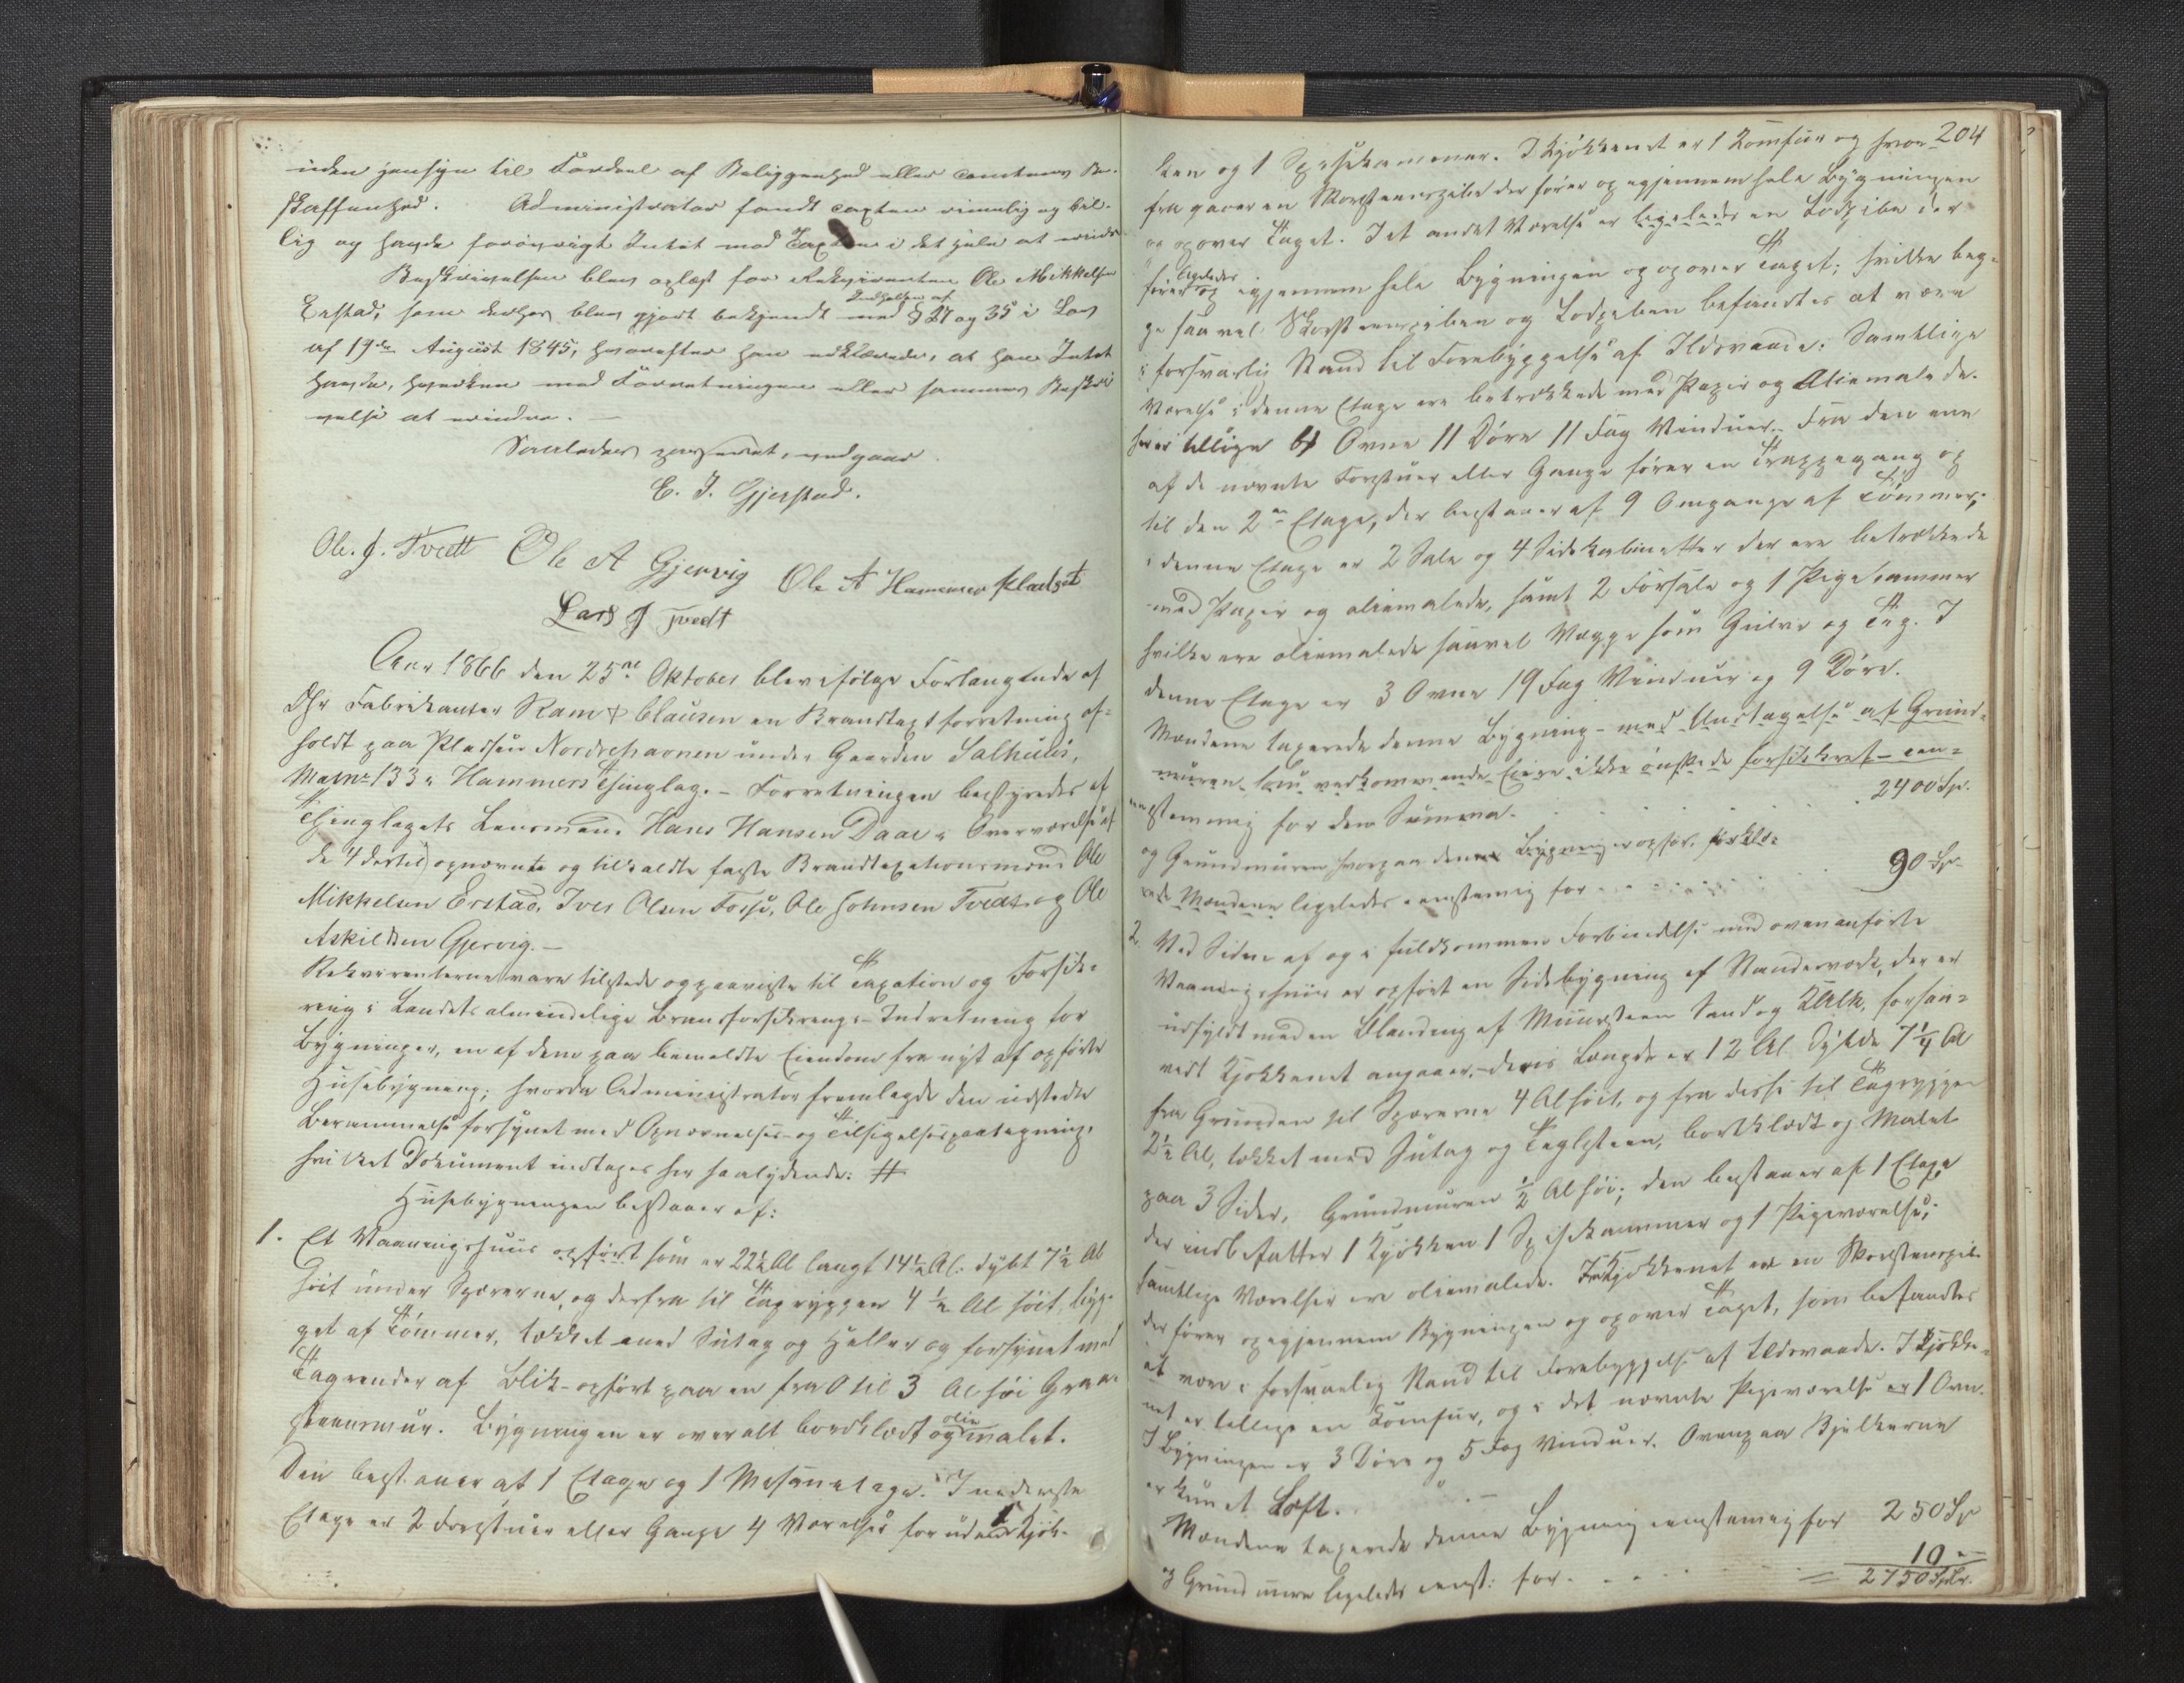 uden hensyn til Fordeel af Beliggenhed eller Tomtens Be-
skaffenhed. Administrator fandt Taxten rimelig og bil-
lig og havde forøvrigt Intet mod Taxten i det hele at erindre
Beskrivelsen blev oplæst for Rekvirenten Ole Mikkelsen
Erstad, som derhos blev gjort bekjendt med Indholdet af § 27 og 35 i Lov
af 19de August 1845, hvorefter han erklærede, at han Intet
havde, hverken med Forretningen eller sammes Beskri
velse at erindre. —
Saaledes passeret, vedgaaes
E. J. Gjerstad.
Ole. J. Tvedt Ole A Gjervig Ole A Hammersklædset
Lars J Tvedt
Aar 1866 den 25de Oktober blev ifølge Forlangende af
DHr Fabrikanter Ram & Clausen en Brandtaxtforretning af-
holdt paa Pladsen Nordrehavnen under Gaarden Salhuus,
Matnr 133 i Hammers Thinglag. – Forretningen bestyredes af
Thinglagets Lensmand Hans Hansen Daae i Overværelse af
de 4 dertil opnævnte og tilkaldte faste Brandtaxationsmænd Ole
Mikkelsen Erstad, Iver Olsen Fosse, Ole Johnsen Tvedt og Ole
Askildsen Gjervig. –
Rekvirenterne vare tilstede og paaviste til Taxation og Forsik-
ring i Landets almindelige Brandforsikrings-Indretning for
Bygninger, en af dem paa bemeldte Eiendom fra nyt af opførte
Husebygning; hvorda Administrator fremlagde den udstedte
Berammelse forsynet med Opnævnelses- og Tilsigelsespaategning,
hvilket Dokument indtages her saalydende: #
Husebygningen bestaaer af:
1. Et Vaaningshuus opført som er 22½ Al langt 14½ Al. dybt 7½ Al
høit under Spærrerne, og derfra til Tagryggen 4½ Al høit, byg-
get af Tømmer, tækket med Sutag og Heller og forsynet med
Tagrender af Blik - opført paa en fra 0 til 3 Al høi Graa-
steensmur. Bygningen er overalt bordklædt og oliemalet.
Den bestaaer af 1 Etage og 1 Mesanetage. I nederste
Etage er 2 Forstuer eller Gange 4 Værelser foruden 1 Kjøk-
204
ken og 1 Spisekammer. I Kjøkkenet er 1 Komfur og hvor-
fra gaaer en Skorsteenspibe der fører op igjennem hele Bygningen
og op over Taget. I et andet Værelse er ligeledes en Lodpibe der
ligeledes
fører op igjennem hele Bygningen og op over Taget; hvilke beg-
ge saavel Skorsteenspiben og Lodpiben befandtes at være
i forsvarlig Stand til Forebyggelse af Ildsvaade. Samtlige
Værelser i denne Etage ere betrukkede med Papir og Oliemalede.
her er tillige 4 Ovne 11 Døre 11 Fag Vinduer. Fra den ene
af de nævnte Forstuer eller Gange fører en Trappegang op
til den 2en Etage, der bestaaer af 9 Omgange af Tømmer;
i denne Etage er 2 Sale og 4 Sidekabinetter der ere betrukkede
med Papir og oliemalede, samt 2 Forsale og 1 Pigekammer
hvilke ere oliemalede saavel Vægge som Gulve og Tag. I
denne Etage er 3 Ovne 19 Fag Vinduer og 9 Døre.
Mændene taxerede denne Bygning – med Undtagelse af Grund-
muren som vedkommende Eiere ikke ønskede forsikret – een-
stemmig for den Summa . . . . . . 2400 Sp.
og Grundmuren hvorpaa denne Bygning er opført, forkla-
rede Mændene ligeledes eenstemmig for . . . . . . 90 Sp.
2. Ved Siden af og i fuldkommen Forbindelse med ovenanførte
Vaaningshuus er opført en Sidebygning af Standerværk, der er
udfyldt med en Blanding af Muursteen Sand og Kalk, forsaa-
vidt Kjøkkenet angaaer, – dens Længde er 12 Al Dybde 7¼ Al
fra Grunden til Spærrerne 4 Al høit, og fra disse til Tagryggen
2½ Al, tækket med Sutag og Taglsteen, bordklædt og Malet
paa 3 Sider, Grundmuren ½ Al høi; den bestaaer af 1 Etage
der indbefatter 1 Kjøkken 1 Spisekammer og 1 Pigeværelse;
samtlige Værelser ere oliemalede. I Kjøkkenet er en Skorsteenspibe
der fører op igjennem Bygningen og op over Taget, som befandtes
at være i forsvarlig Stand til Forebyggelse af Ildsvaade. I Kjøkke-
net er tillige en Komfur, og i det nævnte Pigeværelse er 1 Ovn.
I Bygningen er 3 Døre og 5 Fag Vinduer. Ovenpaa Bjelkerne
er kun et Loft.
Mændene taxerede denne Bygning eenstemmig for 250 Sp
og Grundmuren ligeledes eenst: for . . . . . 10 "
= 2750 Spdr.